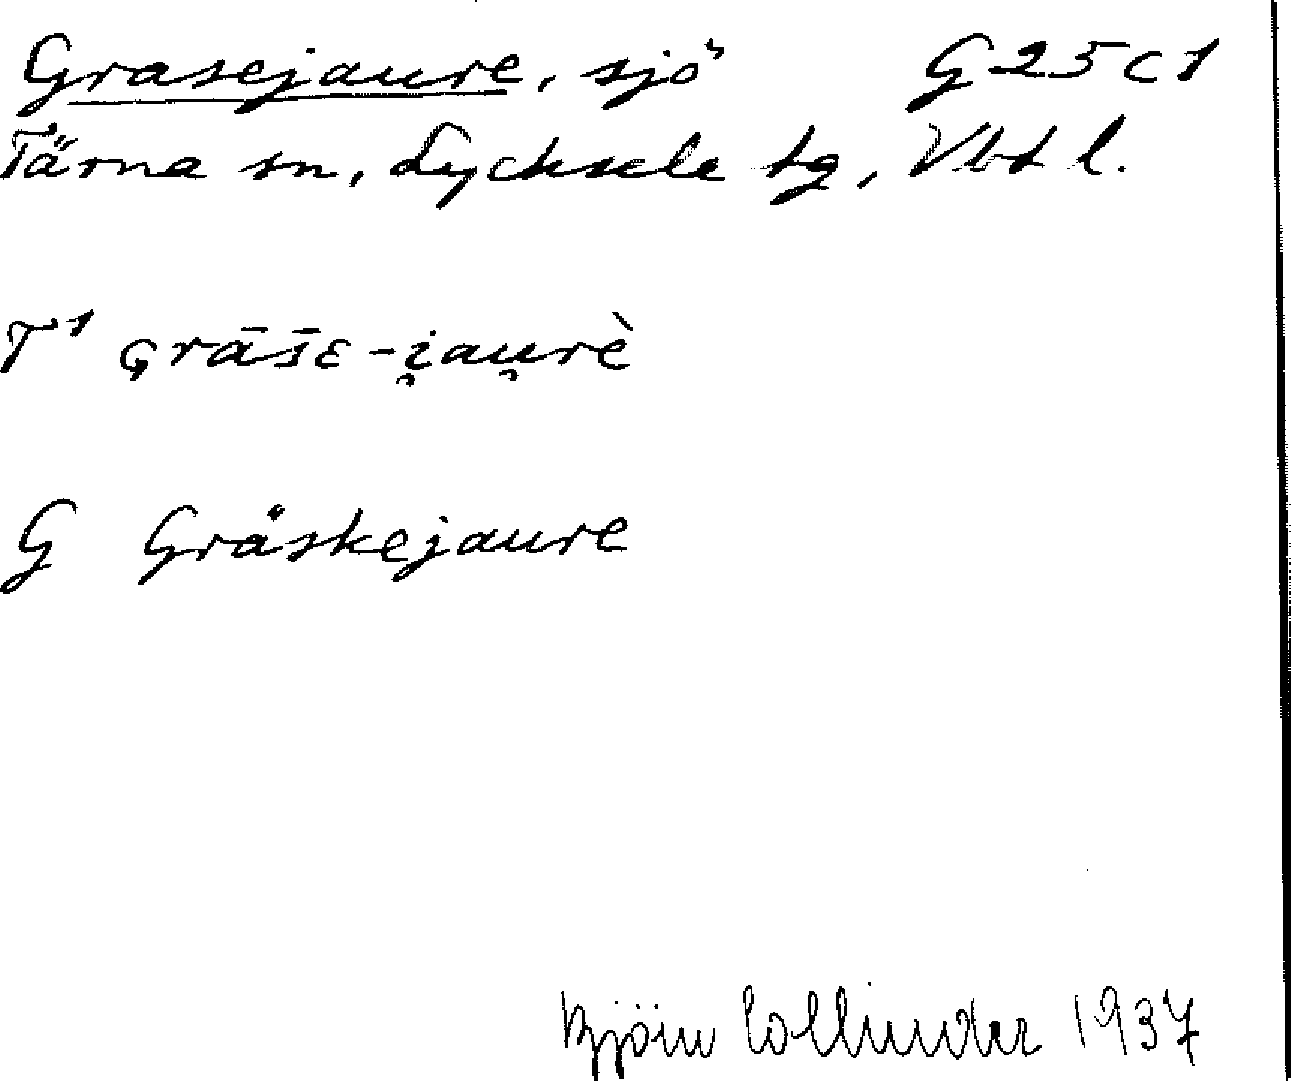 Grasejaure, sjö G25c1
Tärna sn, Lycksele tg, Vbt l.
T¹ ɢrāšɛ-i̯au̯rè
G Gråskejaure
Björn Collinder 1937